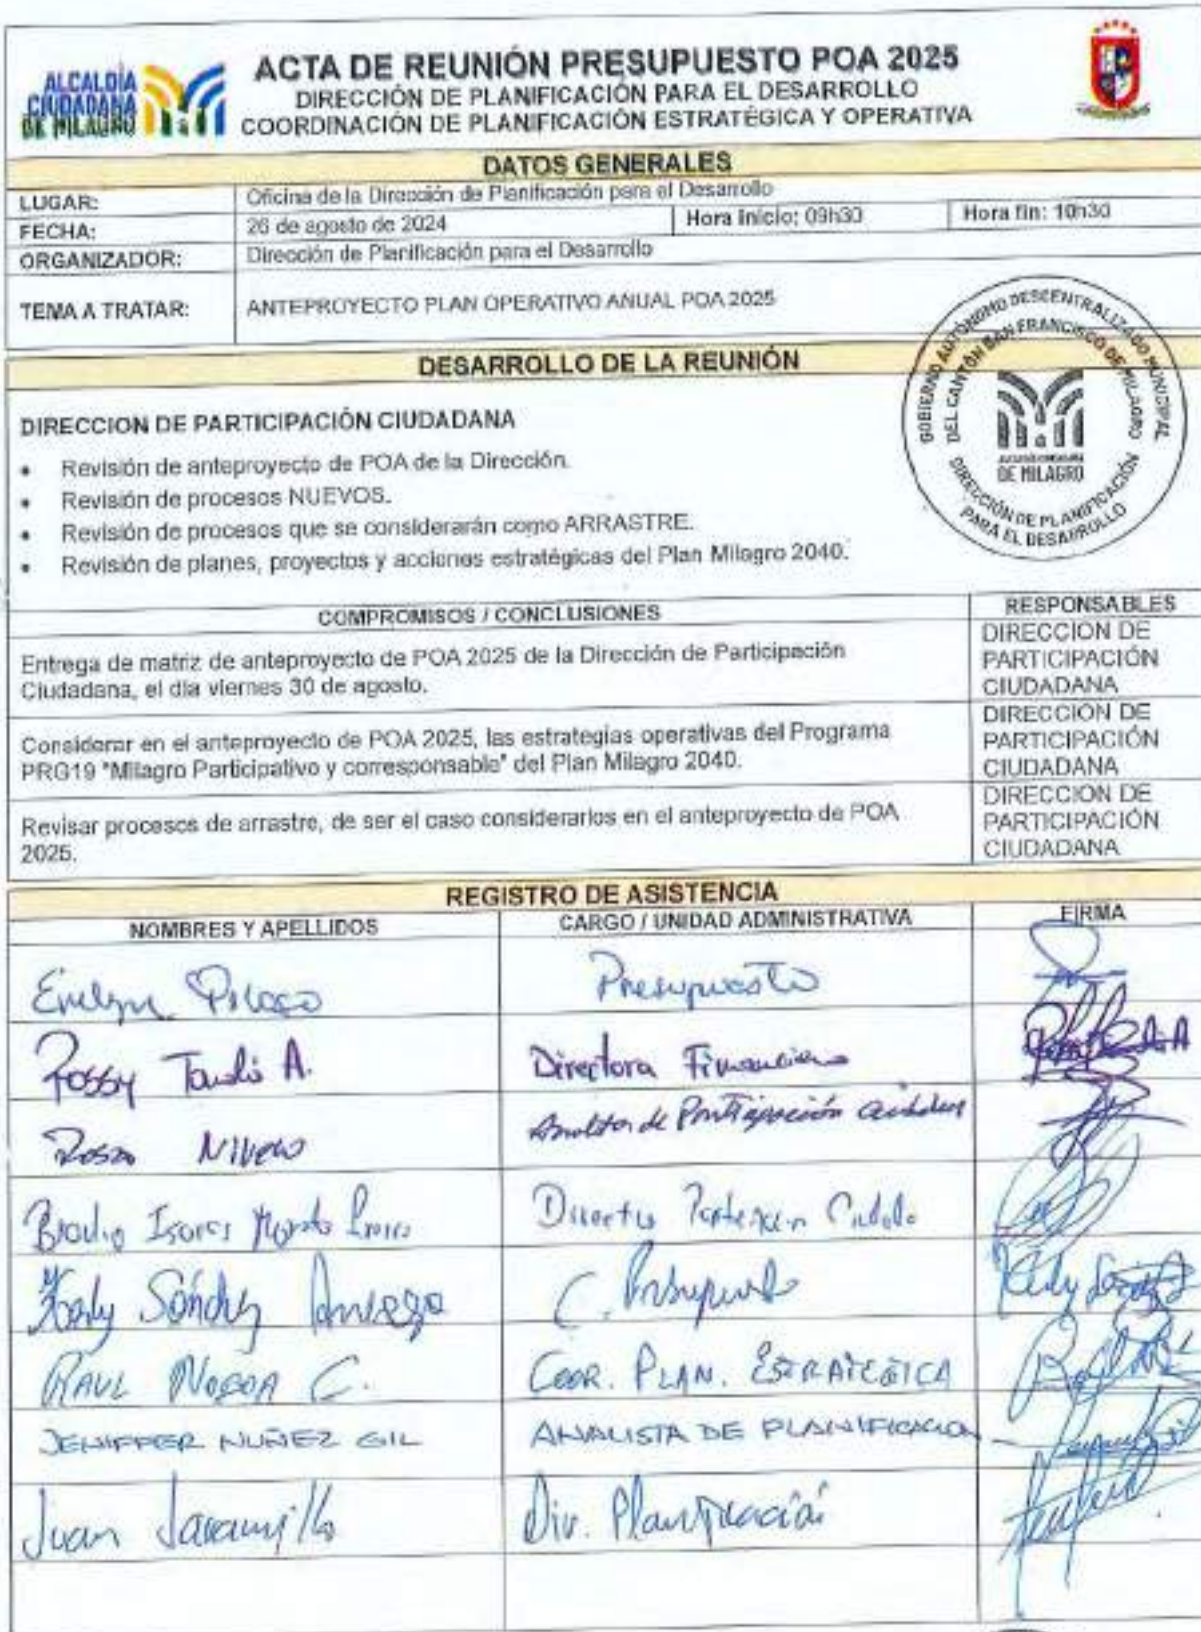 ALCALDÍA
CIUDADANA
DE MILAGRO
ACTA DE REUNIÓN PRESUPUESTO POA 2025
DIRECCIÓN DE PLANIFICACIÓN PARA EL DESARROLLO
COORDINACIÓN DE PLANIFICACIÓN ESTRATÉGICA Y OPERATIVA
DATOS GENERALES
LUGAR: Oficina de la Dirección de Planificación para el Desarrollo
FECHA: 26 de agosto de 2024 Hora inicio: 09h30 Hora fin: 10h30
ORGANIZADOR: Dirección de Planificación para el Desarrollo
TEMA A TRATAR: ANTEPROYECTO PLAN OPERATIVO ANUAL POA 2025
GOBIERNO AUTÓNOMO DESCENTRALIZADO MUNICIPAL
DEL CANTÓN SAN FRANCISCO DE MILAGRO
DE MILAGRO
DIRECCIÓN DE PLANIFICACIÓN
PARA EL DESARROLLO
DESARROLLO DE LA REUNIÓN
DIRECCION DE PARTICIPACIÓN CIUDADANA
• Revisión de anteproyecto de POA de la Dirección.
• Revisión de procesos NUEVOS.
• Revisión de procesos que se considerarán como ARRASTRE.
• Revisión de planes, proyectos y acciones estratégicas del Plan Milagro 2040.
COMPROMISOS / CONCLUSIONES RESPONSABLES
Entrega de matriz de anteproyecto de POA 2025 de la Dirección de Participación
Ciudadana, el día viernes 30 de agosto.
DIRECCION DE
PARTICIPACIÓN
CIUDADANA
Considerar en el anteproyecto de POA 2025, las estrategias operativas del Programa
PRG19 "Milagro Participativo y corresponsable" del Plan Milagro 2040.
DIRECCION DE
PARTICIPACIÓN
CIUDADANA
Revisar procesos de arrastre, de ser el caso considerarlos en el anteproyecto de POA
2025.
DIRECCION DE
PARTICIPACIÓN
CIUDADANA
REGISTRO DE ASISTENCIA
NOMBRES Y APELLIDOS CARGO / UNIDAD ADMINISTRATIVA FIRMA
Evelyn Presupuesto
Rossy A. Directora Financiera
de Participación
Isaac
Sánchez C. Presupuesto
RAUL NOBOA C. COOR. PLAN. ESTRATEGICA
JENIFFER NUÑEZ GIL ANALISTA DE PLANIFICACION
Juan Jaramillo Dir. Planificación